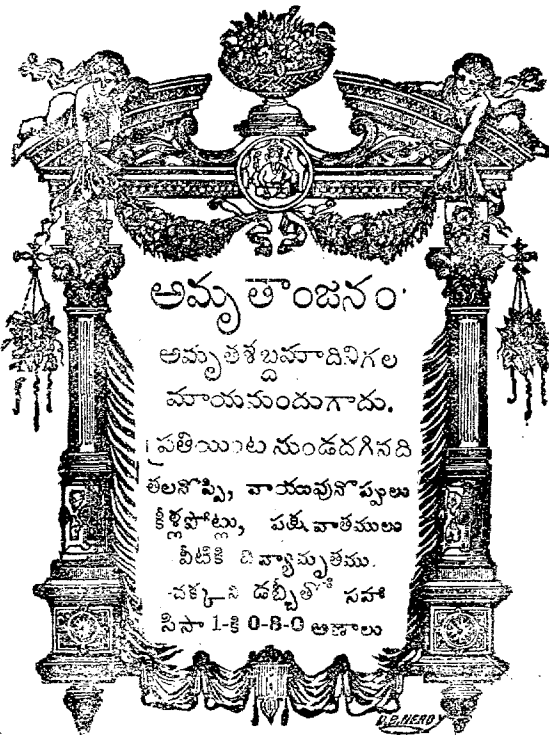 అమృతాంజనం
అమృతశబ్దమాదినిగల
మాయమందుగాదు.
ప్రతియింట నుండదగినది
తలనొప్పి, వాయువునొప్పులు
కీళ్లపోట్లు, పక్షవాతములు
వీటికి దివ్యామృతము.
చక్కని డబ్బీతో సహా
సీసా 1-కి 0-8-0 అణాలు